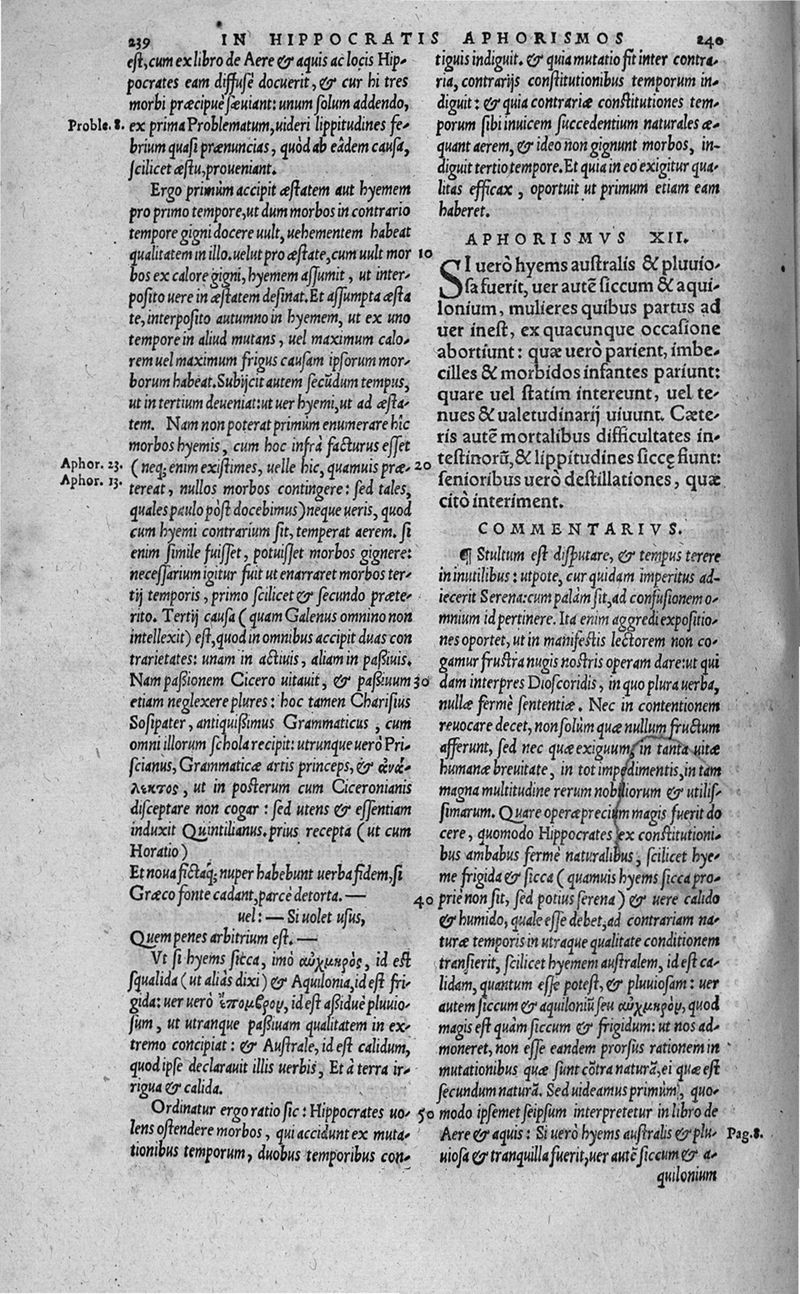 239 IN HIPPOCRATIS APHORISMOS 240
est, cum ex libro de Aere & aquis ac locis Hip-
pocrates eam diffusè docuerit, & cur hi tres
morbi præcipuè sæuiant: unum solum addendo,
Proble. 8. ex prima Problematum, uideri lippitudines fe-
brium quasi prænuncias, quòd ab eâdem causa,
scilicet æstu, proueniant.
Ergo primùm accipit æstatem aut hyemem
pro primo tempore, ut dum morbos in contrario
tempore gigni docere uult, uehementem habeat
qualitatem in illo. uelut pro æstate, cum uult mor
bos ex calore gigni, hyemem assumit, ut inter-
posito uere in æstatem desinat. Et assumpta æsta
te, interposito autumno in hyemem, ut ex uno
tempore in aliud mutans, uel maximum calo-
rem uel maximum frigus causam ipsorum mor-
borum habeat. Subijcit autem secũdum tempus,
ut in tertium deueniat: ut uer hyemi, ut ad æsta-
tem. Nam non poterat primùm enumerare hîc
morbos hyemis, cum hoc infrà facturus esset
Aphor. 23. (neq; enim existimes, uelle hîc, quamuis præ-
Aphor. 13. tereat, nullos morbos contingere: sed tales,
quales paulo pòst docebimus) neque ueris, quod
cum hyemi contrarium sit, temperat aerem. si
enim simile fuisset, potuisset morbos gignere:
necessarium igitur fuit ut enarraret morbos ter-
tij temporis, primo scilicet & secundo præte-
rito. Tertij causa (quam Galenus omnino non
intellexit) est, quod in omnibus accipit duas con
trarietates: unam in actiuis, aliam in paßiuis.
Nam paßionem Cicero uitauit, & paßiuum
etiam neglexere plures: hoc tamen Charisius
Sosipater, antiquißimus Grammaticus, cum
omni illorum schola recipit: utrunque uerò Pri-
scianus, Grammaticæ artis princeps, & ἀνά-
λεκτος, ut in posterum cum Ciceronianis
disceptare non cogar: sed utens & essentiam
induxit Quintilianus. prius recepta (ut cum
Horatio)
Et noua fictaq; nuper habebunt uerba fidem, si
Græco fonte cadant, parcè detorta. —
uel: — Si uolet usus,
Quem penes arbitrium est. —
Vt si hyems sicca, imò αὐχμηρὸς, id est
squalida (ut aliâs dixi) & Aquilonia, id est fri-
gida: uer uerò ἔπομβρον, id est aßiduè pluuio-
sum, ut utranque paßiuam qualitatem in ex-
tremo concipiat: & Australe, id est calidum,
quod ipse declarauit illis uerbis, Et à terra ir-
rigua & calida.
Ordinatur ergo ratio sic: Hippocrates uo-
lens ostendere morbos, qui accidunt ex muta-
tionibus temporum, duobus temporibus con-
tiguis indiguit. & quia mutatio fit inter contra-
ria, contrarijs constitutionibus temporum in-
diguit: & quia contrariæ constitutiones tem-
porum sibi inuicem succedentium naturales æ-
quant aerem, & ideo non gignunt morbos, in-
diguit tertio tempore. Et quia in eo exigitur qua-
litas efficax, oportuit ut primum etiam eam
haberet.
APHORISMVS XII.
10
SI uerò hyems australis & pluuio-
sa fuerit, uer autẽ siccum & aqui-
lonium, mulieres quibus partus ad
uer inest, ex quacunque occasione
abortiunt: quæ uerò parient, imbe-
cilles & morbidos infantes pariunt:
quare uel statim intereunt, uel te-
nues & ualetudinarij uiuunt. Cæte-
ris autẽ mortalibus difficultates in-
20 testinorũ, & lippitudines siccę fiunt:
senioribus uerò destillationes, quæ
citò interiment.
COMMENTARIVS.
¶ Stultum est disputare, & tempus terere
in inutilibus: utpote, cur quidam imperitus ad-
iecerit Serena: cum palàm sit, ad confusionem o-
mnium id pertinere. Ita enim aggredi expositio-
nes oportet, ut in manifestis lectorem non co-
gamur frustra nugis nostris operam dare: ut qui
30 dam interpres Dioscoridis, in quo plura uerba,
nullæ fermè sententiæ. Nec in contentionem
reuocare decet, non solùm quæ nullum fructum
afferunt, sed nec quæ exiguum, in tanta uitæ
humanæ breuitate, in tot impedimentis, in tam
magna multitudine rerum nobiliorum & utilis-
simarum. Quare operæprecium magis fuerit do
cere, quomodo Hippocrates ex constitutioni-
bus ambabus fermè naturalibus, scilicet hye-
me frigida & sicca (quamuis hyems sicca pro-
40 priè non sit, sed potius serena) & uere calido
& humido, quale esse debet, ad contrariam na-
turæ temporis in utraque qualitate conditionem
transierit, scilicet hyemem australem, id est ca-
lidam, quantum esse potest, & pluuiosam: uer
autem siccum & aquiloniũ seu αὐχμηρὸν, quod
magis est quàm siccum & frigidum: ut nos ad-
moneret, non esse eandem prorsus rationem in
mutationibus quæ sunt cõtra naturã, ei quæ est
secundum naturã. Sed uideamus primùm, quo-
50 modo ipsemet seipsum interpretetur in libro de
Aere & aquis: Si uerò hyems australis & plu- Pag. 8.
uiosa & tranquilla fuerit, uer autẽ siccum & a-
quilonium